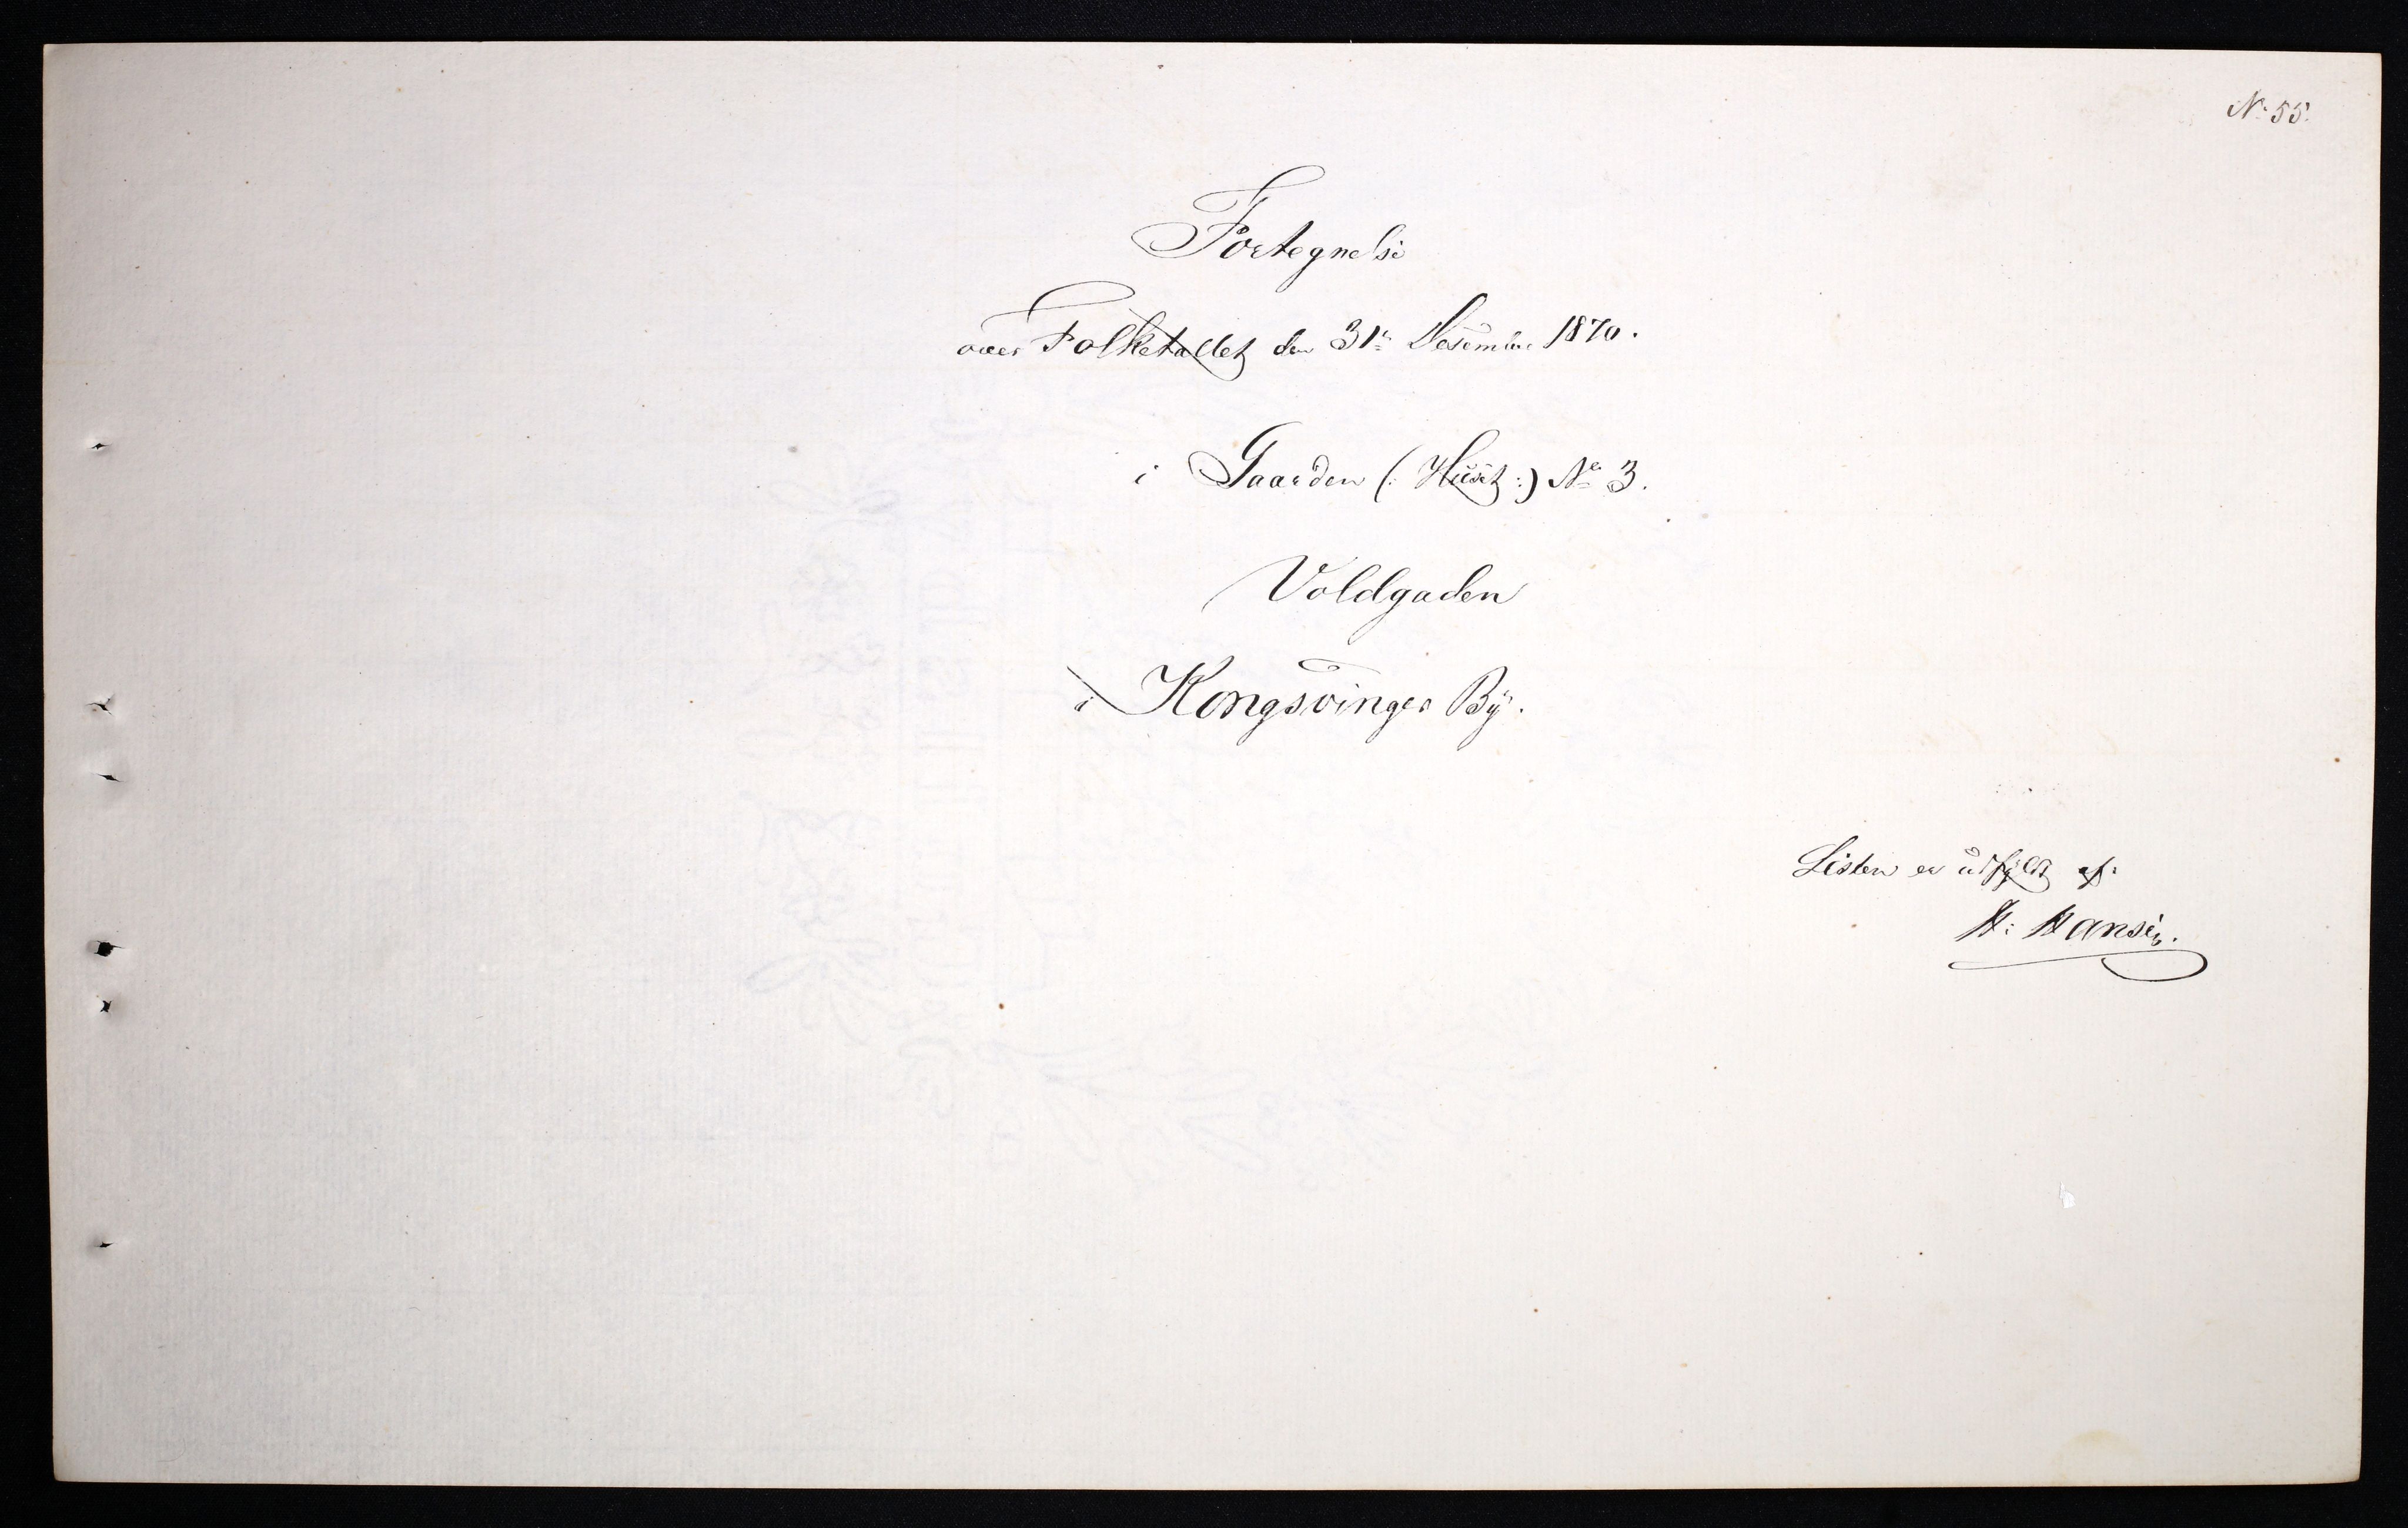 N: 55.
Fortegnelse
over Folketallet den 31te Desember 1870.
i Gaarden (: Huset :) No 3.
Voldgaden
i Kongsvinger By.
Listen er udfyldt af:
H: Hansen.